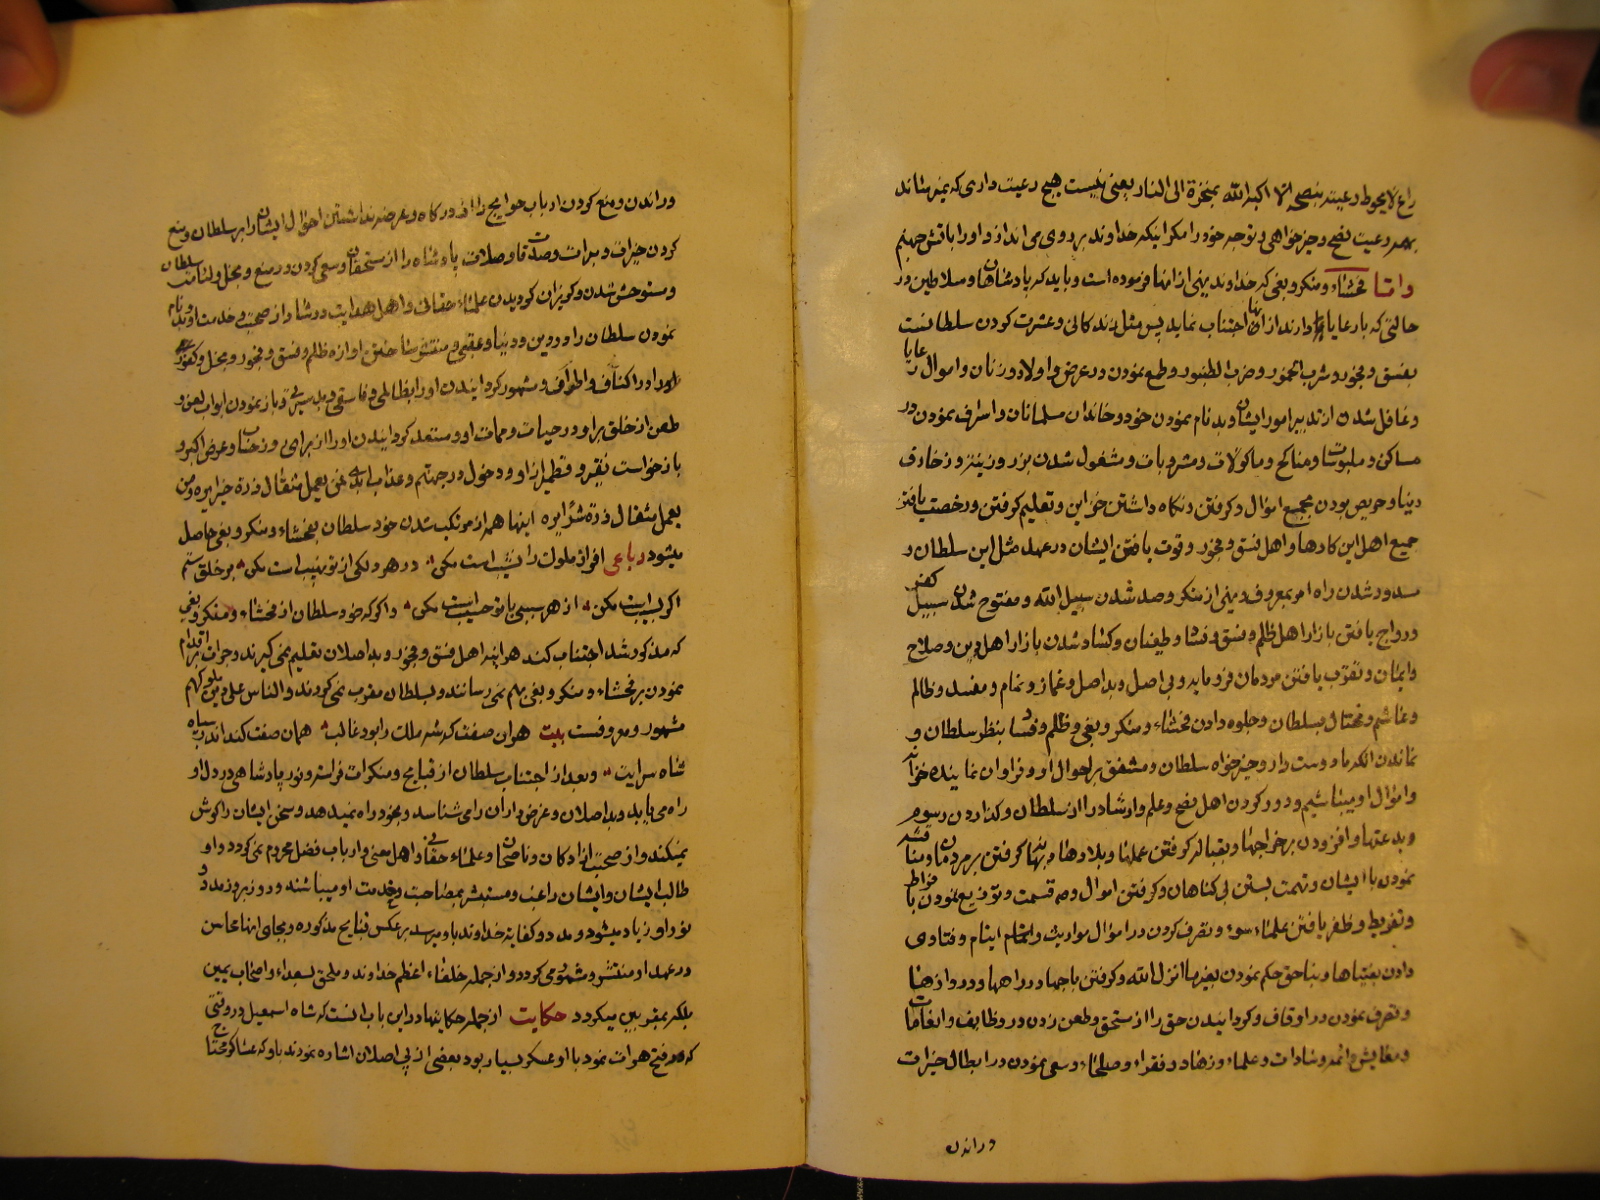 راع لا یحوط رعیته بنصحه الا اکبه الله بمنخره الی النار یعنی نیست هیچ رعیت داری که نمیرساند
بهر رعیت نصح و خیرخواهی و توجه خود را مکر اینکه خداوند بر روی می اندازد او را باتش جهنم
و امّا فحشاء و منکر و بغی که خداوند نهی از انها فرموده است و باید که پادشاهان و سلاطین در
حالتی که با رعایا دارند از انها اجتناب نماید پس مثل زندکانی و عشرت کردن سلطانست
بفسق و فجور و شرب الخمور و ضرب الطنبور و طمع نمودن در عرض و اولاد و زنان و اموال رعایا
و غافل شدن از تدبیر امور ایشان و بدنام نمودن خود و خاندان مسلمانان و اسراف نمودن در
مساکن و ملبوسات و مناکح و ماکولات و مشروبات و مشغول شدن بزر و زینت و زخارف
دنیا و حریص بودن بجمیع اموال و کرفتن و نکاه داشتن خزاین و تعلیم کرفتن و رخصت یافتن
جمیع اهل این کارها و اهل فسق و فجور و قوت یافتن ایشان در عهد مثل این سلطان و
مسدود شدن راه امر بمعروف و نهی از منکر و صد شدن سبیل الله و مفتوح شدن سبیل کفر
و رواج یافتن بازار اهل ظلم و فسق و فساد و طغیان و کساد شدن بازار اهل دین و صلاح
و ایمان و تقرّب یافتن مردمان فرومایه و بی اصل و بد اصل و غماز و نمام و مفسد و ظالم
و غاشم و مختال بسلطان و جلوه دادن فحشاء و منکر و بغی و ظلم و فساد بنظر سلطان و
نماندن انکه ما دوست دار و خیرخواه سلطان و مشفق بر احوال او و فراوان نماینده خزاین
و اموال او میباشیم و دور کردن اهل نصح و علم و ارشاد را از سلطان و کذاردن رسوم
و بدعتها و افزودن بر خراجها و بقباله کرفتن عملها و بلادها و بهانه کرفتن بر مردمان و مناقشه
نمودن با ایشان و تهمت بستن بی کناهان و کرفتن اموال و قسمت و توزیع نمودن بافراط
و تفریط و ظفر یافتن علماء سوء و تصرف کردن در اموال مواریث و ایتام و فتاوی
دادن بفتیاها و بناحق حکم نمودن بغیر ما انزل الله و کرفتن باجها در راهها و دروازها
و تصرف نمودن در اوقاف و کردانیدن حق را از مستحق و طعن زدن در وظایف و انعامات
و معایش ائمه و سادات و علماء و زهاد و فقراء و صلحاء و سعی نمودن در ابطال خیرات
و راندن
و راندن و منع کردن ارباب حوایج را از درکاه و عرضه نداشتن احوال ایشان را بر سلطان و منع
کردن خیرات و مبرات و صدقات و صلات پادشاه را از مستحقان و سعی کردن در منع و بخل و لئامت سلطان
و مستوحش شدن و کریزان کردیدن علماء حقانی و اهل هدایت و رشاد از صحبت و خدمت او و بدنام
نمودن سلطان را در دین و دنیا و عقبی و منتشر ساختن اوازه ظلم و فسق و فجور و بخل و کفر
او را در اکناف و اطراف و مشهور کردانیدن او را بظالمی و فاسقی و بد سیرتی و باز نمودن ابواب لعن و
طعن از خلق بر او در حیات و ممات او و مستعد کردانیدن او را از برای روز حساب و عرض اکبر و
بازخواست نقیر و قطمیر از او و دخول در جهنم و عذاب ابدی فمن یعمل مثقال ذرة خیرا یره و من
یعمل مثقال ذرة شرّا یره اینها همه از مرتکب شدن خود سلطان بفحشاء و منکر و بغی حاصل
میشود رباعی افراز ملوک را نشیب است مکن در هر دلکی از تو نهیب است مکن بر خلق ستم
اکر بسیب است مکن از هر سیبی با تو حسیب است مکن و اکر که خود سلطان از فحشاء و منکر و بغی
که مذکور شد اجتناب کند هراینه اهل فسق و فجور و بد اصلان تعلیم نمی کیرند و جرات بر اقدام
نمودن بر فحشاء و منکر و بغی بهم نمی رسانند و بسلطان مقرب نمی کردند و الناس علی دین ملوکهم
مشهور و معروفست بیت هر ان صفت که شه ملک را بود غالب همان صفت کند اندر سپاه
شاه سرایت و بعد از اجتناب سلطان از قبایح و منکرات فراست و نور پادشاهی در دل او
راه می یابد و بد اصلان و غرض داران را می شناسد و بخود راه نمیدهد و سخن ایشان را کوش
نمیکند و از صحبت ازادکان و ناصحان و علماء حقانی و اهل معنی و ارباب فضل محروم نمی کردد و او
طالب ایشان و ایشان راغب و مستبشر بمصاحبت و خدمت او میباشند و روز بروز مدد
نور او زیاد میشود و مدد و کفایة خداوند باو میرسد بر عکس قبایح مذکوره و بجای انها محاسن
در عهد او منتشر و مشهور می کردد و از جمله خلفاء اعظم خداوند و ملحق بسعداء و اصحاب یمین
بلکه بمقربین میکردد حکایت از جمله حکایتها در این باب انست که شاه اسمعیل در وقتی
که فتح هرات نمود با او عسکر بسیار بود بعضی از بی اصلان اشاره نمودند باو که عساکر محتاج